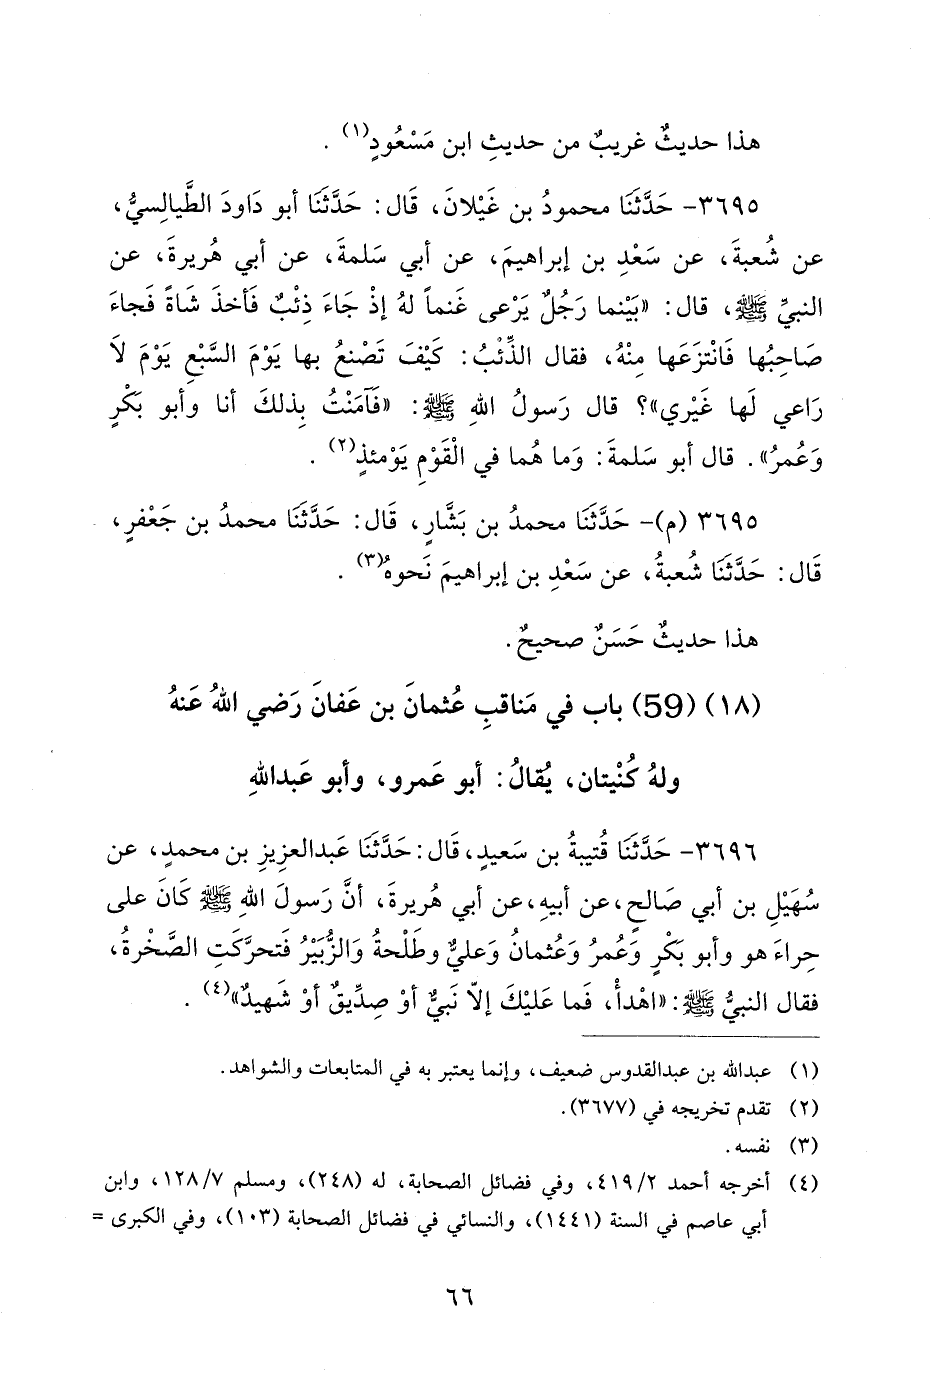 هذا حديثٌ غريبٌ من حديثِ ابن مَسْعُودٍ(١) .
٣٦٩٥- حَدَّثَنَا محمودُ بن غَيْلانَ، قَال: حَدَّثَنَا أبو دَاودَ الطَّيالِسيُّ،
عن شُعبةَ، عن سَعْدِ بن إبراهيمَ، عن أبي سَلمةَ، عن أبي هُريرةَ، عن
النبيِّ ﷺ، قال: «بَيْنما رَجُلٌ يَرْعى غَنماً لهُ إذْ جَاءَ ذِئْبٌ فَأخذَ شَاةً فَجاءَ
صَاحِبُها فَانْتزَعَها مِنْهُ، فقال الذِّئْبُ: كَيْفَ تَصْنعُ بها يَوْمَ السَّبْعِ يَوْمَ لاَ
رَاعي لَها غَيْري»؟ قال رَسولُ اللهِ ﷺ: «فَآمَنْتُ بِذلكَ أنا وأبو بَكْرٍ
وَعُمرُ». قال أبو سَلمةَ: وَما هُما في الْقَوْمِ يَوْمئذٍ(٢) .
٣٦٩٥ (م)- حَدَّثَنَا محمدُ بن بَشَّارٍ، قَال: حَدَّثَنَا محمدُ بن جَعْفرٍ،
قَال: حَدَّثَنَا شُعبةُ، عن سَعْدِ بن إبراهيمَ نَحوهُ(٣) .
هذا حديثٌ حَسَنٌ صحيحٌ.
(١٨) (59) باب في مَناقبِ عُثمانَ بن عَفانَ رَضي اللهُ عَنهُ
ولهُ كُنْيتان، يُقالُ: أبو عَمرو، وأبو عَبداللهِ
٣٦٩٦- حَدَّثَنَا قُتيبةُ بن سَعيدٍ، قَال: حَدَّثَنَا عَبدالعزيزِ بن محمدٍ، عن
سُهَيْلِ بن أبي صَالحٍ، عن أبيهِ، عن أبي هُريرةَ، أنَّ رَسولَ اللهِ ﷺ كَانَ على
حِراءَ هو وأبو بَكْرٍ وَعُمرُ وَعُثمانُ وَعليٌّ وطَلْحةُ وَالزُّبَيْرُ فَتحرَّكَتِ الصَّخْرةُ،
فقال النبيُّ ﷺ: «اهْدأْ، فَما عَليْكَ إلاّ نَبيٌّ أوْ صِدِّيقٌ أوْ شَهيدٌ»(٤) .
(١) عبدالله بن عبدالقدوس ضعيف، وإنما يعتبر به في المتابعات والشواهد.
(٢) تقدم تخريجه في (٣٦٧٧).
(٣) نفسه.
(٤) أخرجه أحمد ٢/ ٤١٩، وفي فضائل الصحابة، له (٢٤٨)، ومسلم ٧/ ١٢٨، وابن
أبي عاصم في السنة (١٤٤١)، والنسائي في فضائل الصحابة (١٠٣)، وفي الكبرى =
٦٦